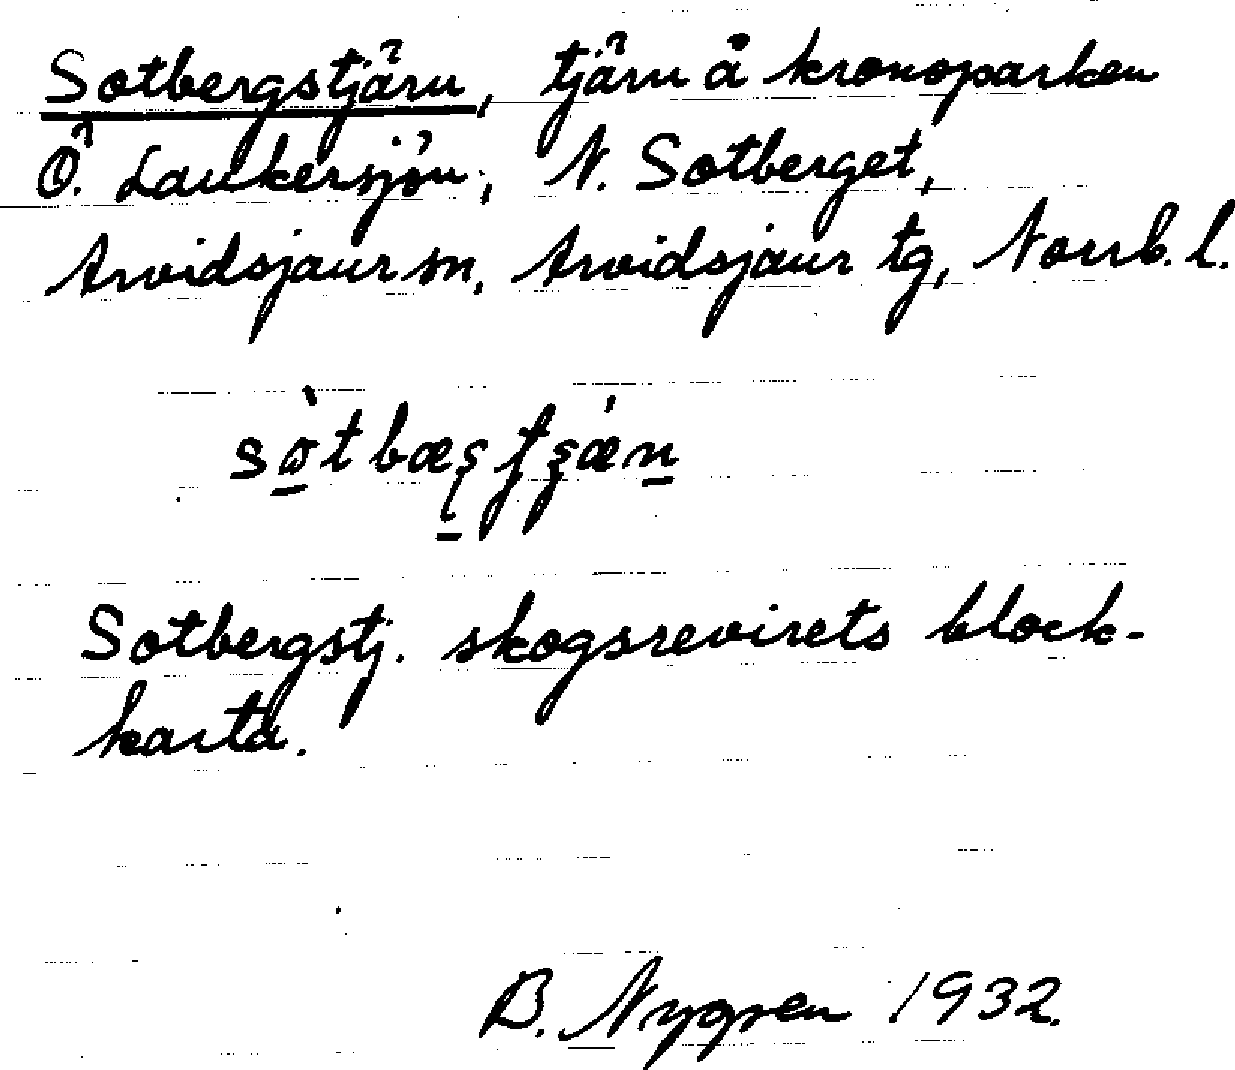 Sotbergstjärn, tjärn å kronoparken
Ö. Laukersjön, N. Sotberget,
Arvidsjaur sn, Arvidsjaur tg, Norrb. l.
Sotbergstj. skogsrevirets block-
karta.
B. Nygren 1932.